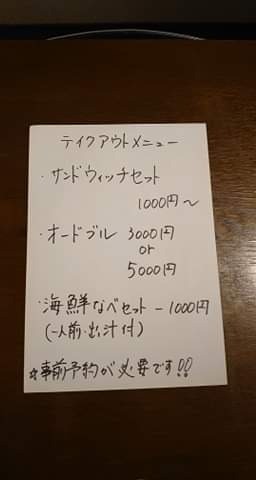 テイクアウトメニュー
・サンドウィッチセット
1000円～
・オードブル 3000円
or
5000円
・海鮮なべセット－1000円
(一人前・出汁付)
☆事前予約が必要です!!